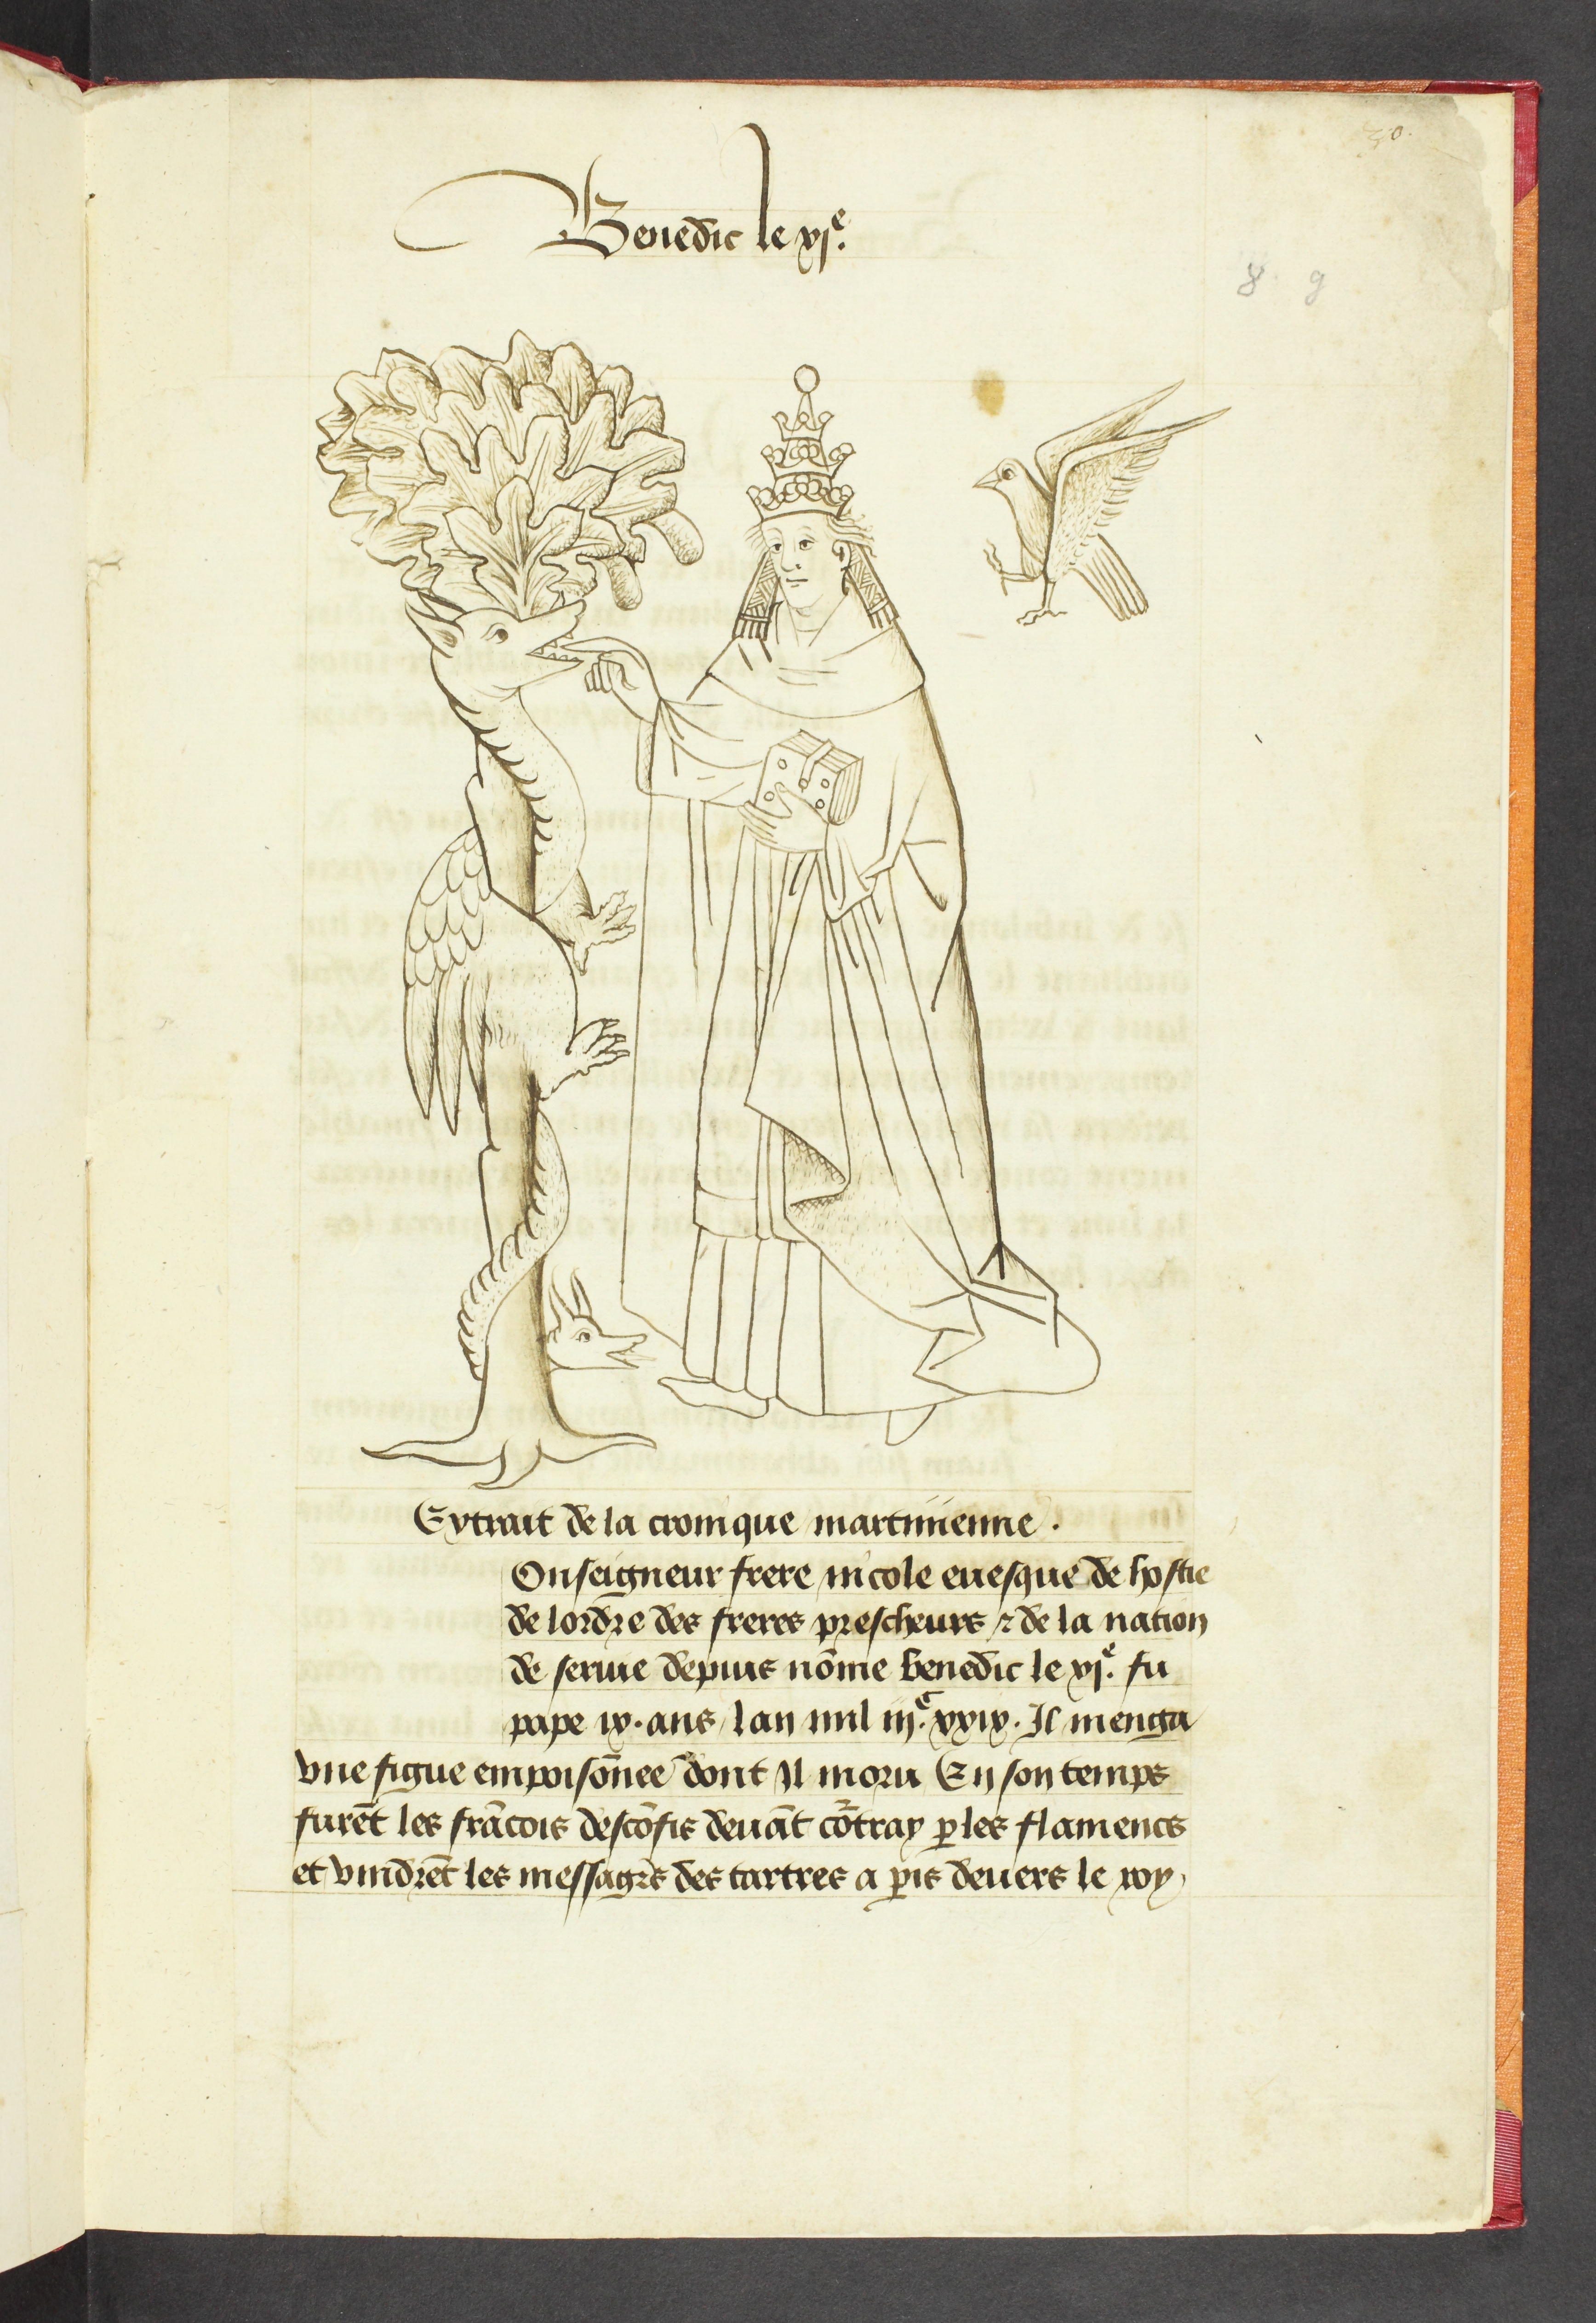 30.
Benedic le xj.e
8 9
Extrait de la cronique martinienne.
Onseigneur frere nicole euesque de hostie
de lordre des freres prescheurs ⁊ de la nation
de seruie depuis nōme benedic le xj.e fu
pape ix. ans lan mil iij.c xxix. Il menga
vne figue empoisōnee dont Il moru En son temps
furēt les frācois descōfis deuāt cōtray p les flamencs
et vindrēt les messagrs des tartres a pis deuers le roy